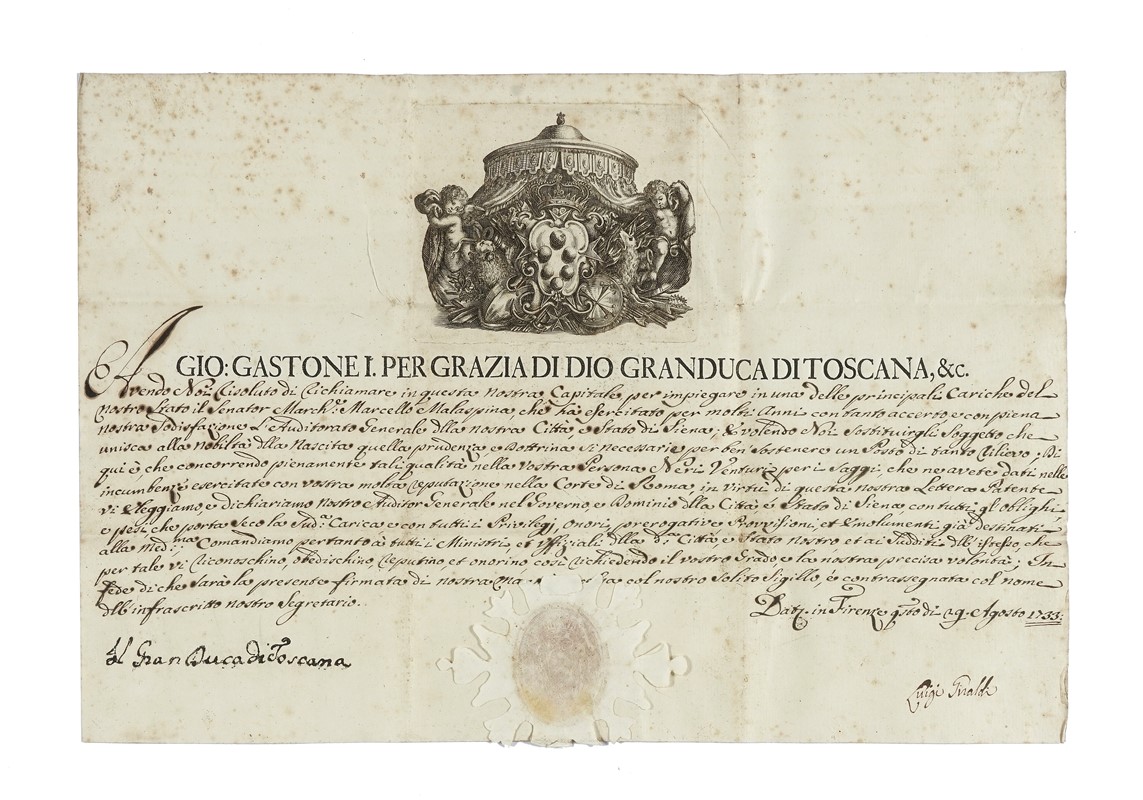 GIO: GASTONE I. PER GRAZIA DI DIO GRANDUCA DI TOSCANA, &c.
Avendo Noi risoluto di richiamare in questa nostra Capitale per impiegare in una delle principali Cariche del
nostro Stato il Senator March: Marcello Malaspina, che ha esercitato per molti Anni con tanto accerto e con piena
nostra Sodisfazione L'Auditorato Generale dlla nostra Città, e Stato di Siena; E volendo Noi Sostituirgli Soggetto che
unisca alla Nobiltà dlla Nascita quella prudenza e Dottrina sì necessarie per ben' Sostenere un Posto di tanto rilievo, Di
qui è, che concorrendo pienamente tali qualità nella Vostra Persona Neri Venturi per i Saggi, che ne avete dati nelle
incumbenze esercitate con vostra molta reputazione nella Corte di Roma, in Virtù di questa nostra Lettera Patente
Vi Eleggiamo, e dichiariamo nostro Auditor Generale nel Governo, e Dominio dlla Città e Stato di Siena, con tutti gl'oblighi
e pesi che porta Seco la Sud.a Carica e con tutti i Privilegj, onori, prerogative Provvisioni, et Emolumenti già destinati
alla Med.ma Comandiamo pertanto à tutti i Ministri, et Uffiziali dlla d.a Città, e Stato nostro et ai Sudditi dll'istesso, che
per tale vi riconoschino, obedischino, reputino et onorino così richiedendo il vostro Grado e la nostra precisa volontà; In
fede di che sarà la presente firmata di nostra col nostro Solito Sigillo, e contrassegnata col nome
dll'infrascritto nostro Segretario.
Dat. in Firenze q.sto dì 29. Agosto 1733.
Il Gran Duca di Toscana
Luigi